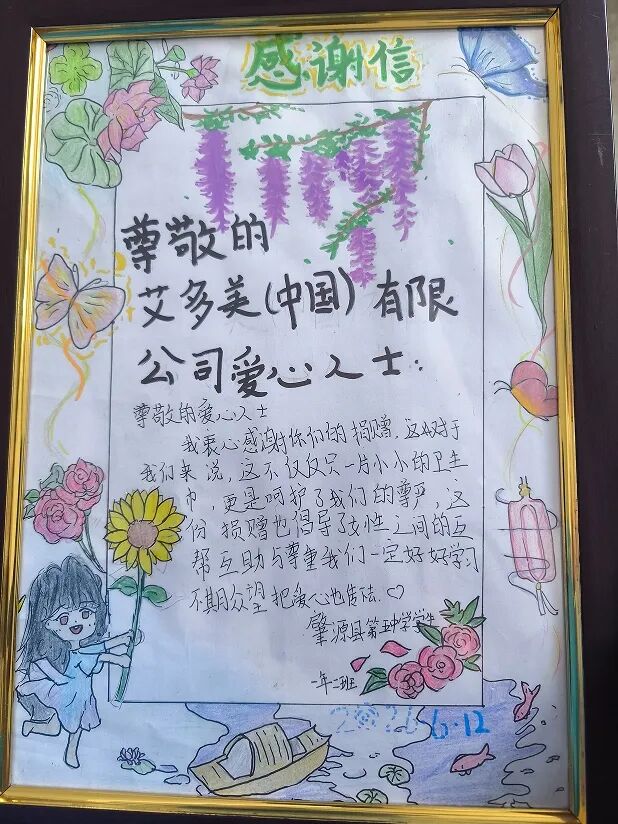 感谢信
尊敬的
艾多美(中国)有限
公司爱心人士:
尊敬的爱心人士
我衷心感谢你们的捐赠,这对于
我们来说,这不仅仅只一片小小的卫生
巾,更是呵护了我们的尊严,这
份捐赠也倡导了女性之间的互
帮互助与尊重我们一定好好学习
不期众望把爱心也传
肇源县第五中学学生
一年二班
2026 6.12